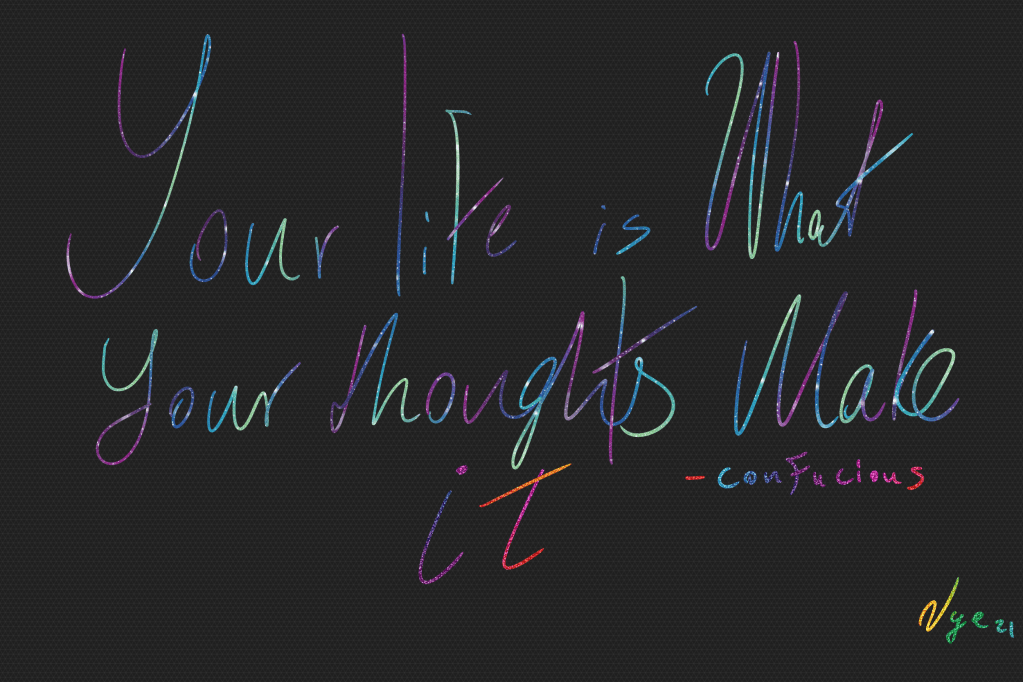 Your life is What
your thoughts Make
it
- confucious
Nye 21